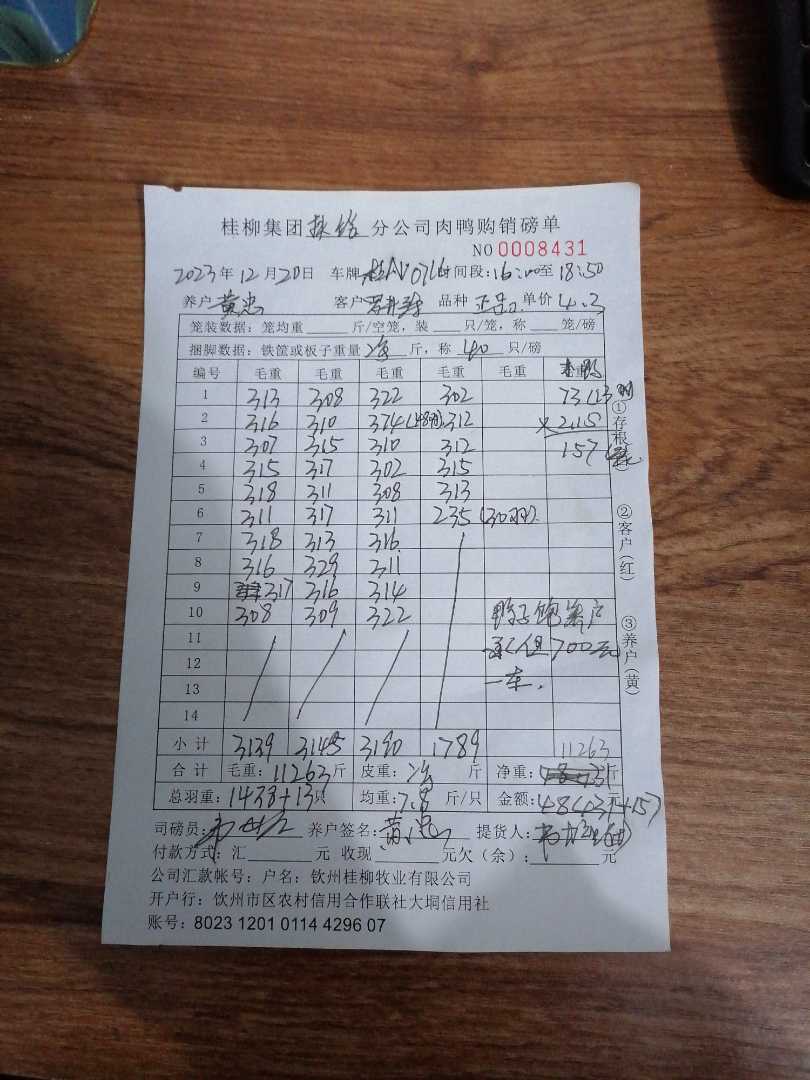 桂柳集团 分公司肉鸭购销磅单
NO 0008431
2023年12月20日 车牌 时间段:16:00至18:50
养户 黄忠 客户 品种 正品 单价 4.3
笼装数据：笼均重 斤/空笼，装 只/笼，称 笼/磅
捆脚数据：铁筐或板子重量 净 斤，称 40 只/磅
编号 毛重 毛重 毛重 毛重 毛重
1 313 308 322 302 731(13羽)
2 316 310 374(48羽) 312 ×2.15
3 307 315 310 312 157
4 315 317 302 315
5 318 311 308 313
6 311 317 311 235(30羽)
7 318 313 316
8 316 329 311
9 317 316 314
10 308 309 322
11
12
13
14
鸭子 客户
700元
一车.
小计 3139 3145 3190 1789 11263
合计 毛重: 11263斤 皮重: 净 斤 净重: 斤
总羽重: 1438+13只 均重: 7.8 斤/只 金额: 48431+157 元
司磅员: 养户签名: 黄忠 提货人:
付款方式：汇 元 收现 元欠（余）: 元
公司汇款帐号：户名：钦州桂柳牧业有限公司
开户行：钦州市区农村信用合作联社大垌信用社
账号：8023 1201 0114 4296 07
①存根
②客户(红)
③养户(黄)